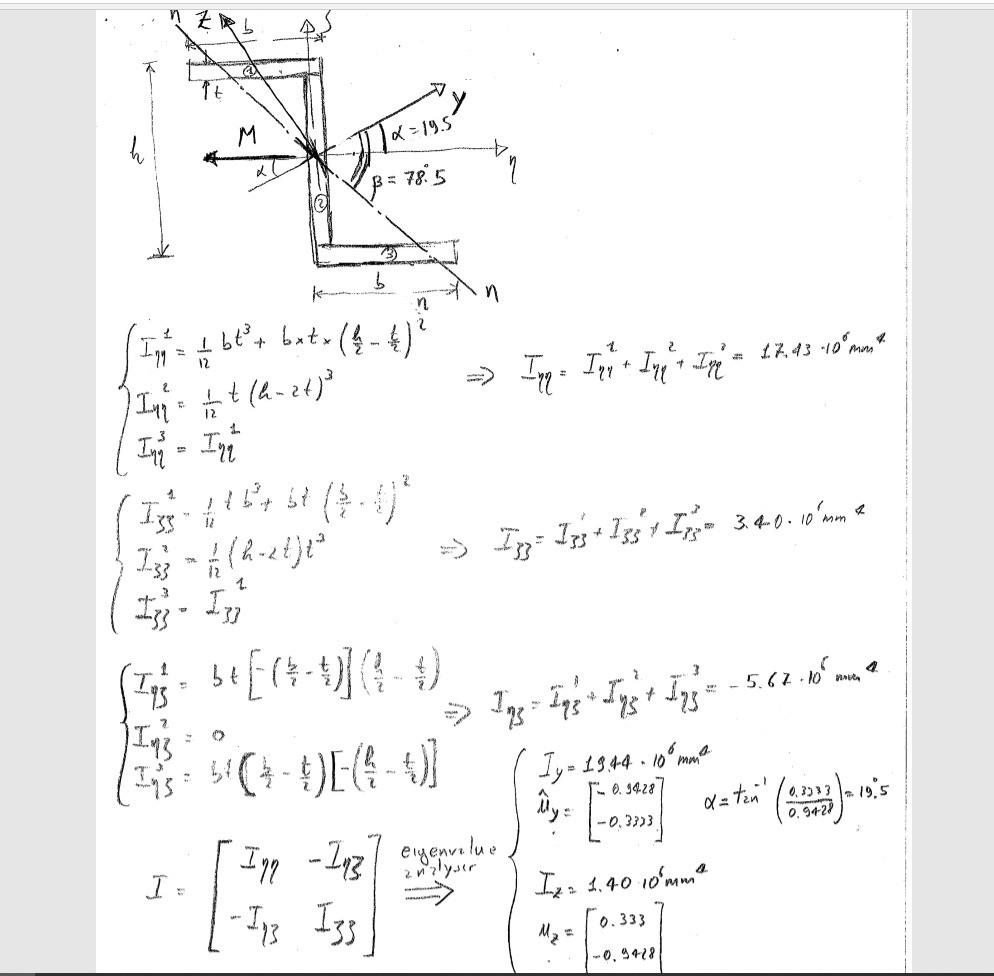 n Z b ζ
①
t
h
M
α
y
α = 19.5
η
β = 78.5°
②
③
b
n
n
I_ηη^1 = 1/12 bt^3 + b×t×(h/2 - t/2)^2
I_ηη^2 = 1/12 t (h-2t)^3
I_ηη^3 = I_ηη^1
⇒ I_ηη = I_ηη^1 + I_ηη^2 + I_ηη^3 = 17.43 · 10^6 mm^4
I_ζζ^1 = 1/12 t b^3 + bt (b/2 - t/2)^2
I_ζζ^2 = 1/12 (h-2t) t^3
I_ζζ^3 = I_ζζ^1
⇒ I_ζζ = I_ζζ^1 + I_ζζ^2 + I_ζζ^3 = 3.40 · 10^6 mm^4
I_ηζ^1 = bt [-(b/2 - t/2)] (h/2 - t/2)
I_ηζ^2 = 0
I_ηζ^3 = bt (b/2 - t/2) [-(h/2 - t/2)]
⇒ I_ηζ = I_ηζ^1 + I_ηζ^2 + I_ηζ^3 = -5.67 · 10^6 mm^4
I = [ I_ηη -I_ηζ
-I_ηζ I_ζζ ]
eigenvalue
analysis
⇒
I_y = 19.44 · 10^6 mm^4
û_y = [ -0.9428
-0.3333 ]
α = tan^-1 (0.3333/0.9428) = 19.5°
I_z = 1.40 · 10^6 mm^4
u_z = [ 0.333
-0.9428 ]